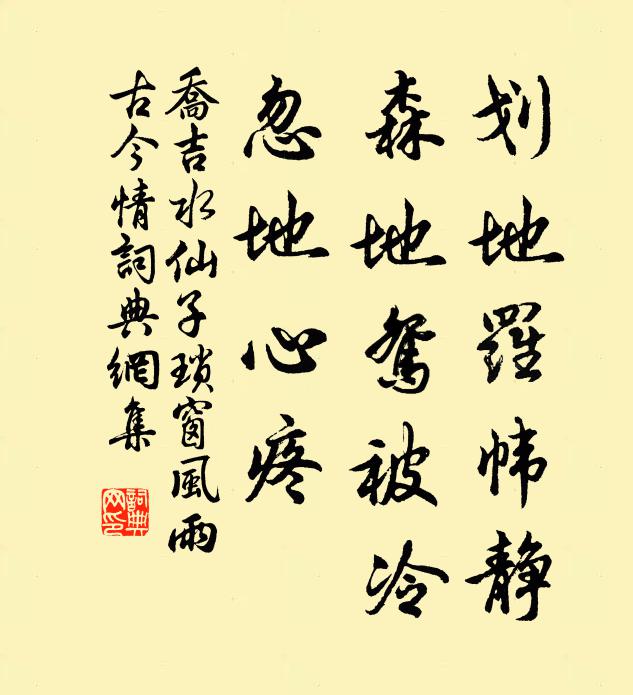 划地羅帏静
森地鸳被冷
忽地心疼
喬吉水仙子瑣窗風雨
古今情詞典網集
詞典网印